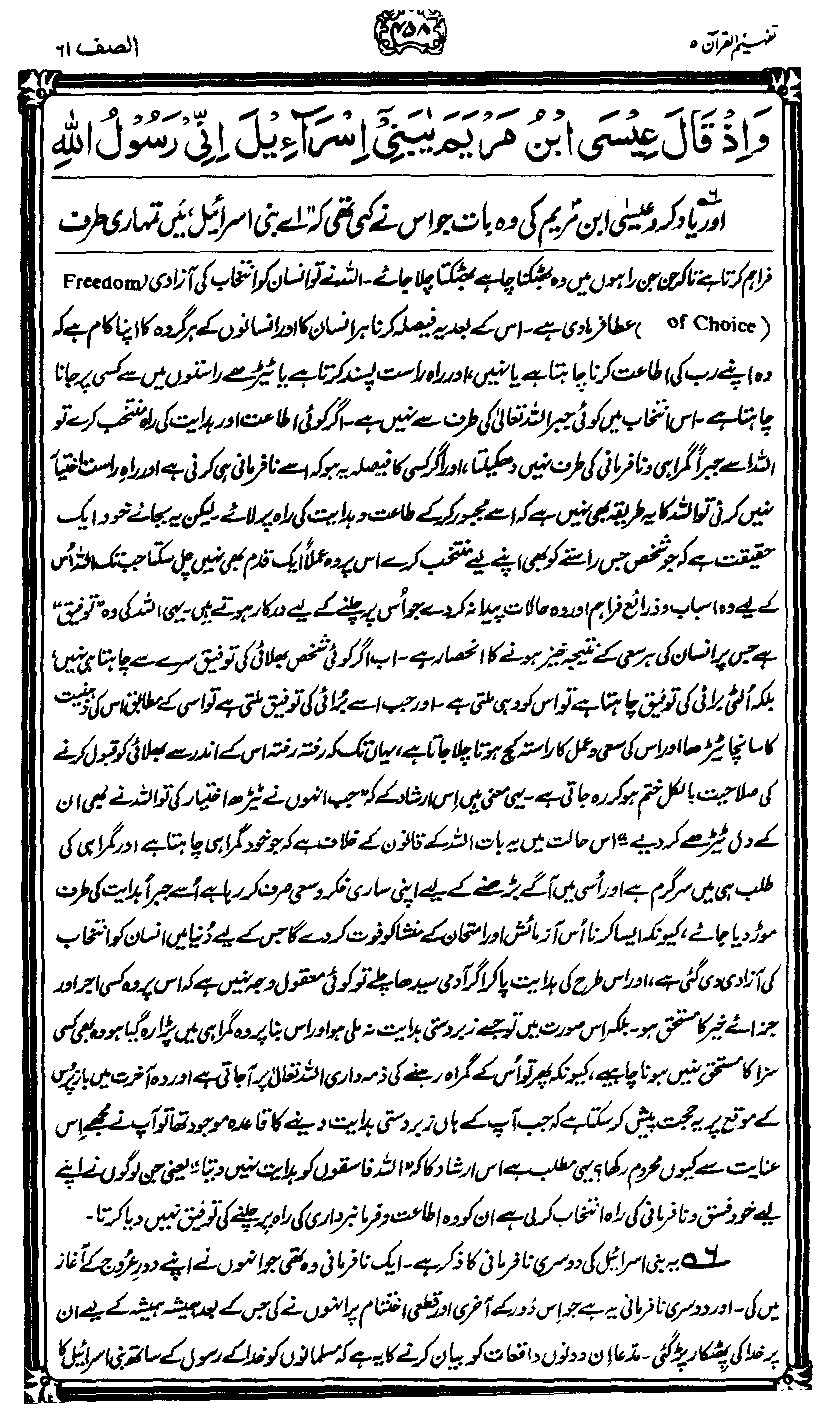 تفہیم القرآن ۵
۴۵۸
الصف ۶۱
وَاِذْ قَالَ عِيْسَى ابْنُ مَرْيَمَ يٰبَنِيْٓ اِسْرَآءِيْلَ اِنِّيْ رَسُوْلُ اللهِ
اور یاد کرو عیسٰی ابن مریم کی وہ بات جو اس نے کہی تھی کہ ”اے بنی اسرائیل، میں تمہاری طرف
فراہم کرتا ہے تاکہ جن جن راہوں میں وہ بھٹکنا چاہے بھٹکتا چلا جائے۔ اللہ نے تو انسان کو انتخاب کی آزادی (Freedom
of Choice) عطا فرما دی ہے۔ اس کے بعد یہ فیصلہ کرنا ہر انسان کا اور انسانوں کے ہر گروہ کا اپنا کام ہے کہ
وہ اپنے رب کی اطاعت کرنا چاہتا ہے یا نہیں، اور راہ راست پسند کرتا ہے یا ٹیڑھے راستوں میں سے کسی پر جانا
چاہتا ہے۔ اس انتخاب میں کوئی جبر اللہ تعالیٰ کی طرف سے نہیں ہے۔ اگر کوئی اطاعت اور ہدایت کی راہ منتخب کرے تو
اللہ اسے جبراً گمراہی و نافرمانی کی طرف نہیں دھکیلتا، اور اگر کسی کا فیصلہ یہ ہو کہ اسے نافرمانی ہی کرنی ہے اور راہ راست اختیار
نہیں کرنی تو اللہ کا یہ طریقہ بھی نہیں ہے کہ اسے مجبور کر کے طاعت و ہدایت کی راہ پر لائے۔ لیکن یہ بجائے خود ایک
حقیقت ہے کہ جو شخص جس راستے کو بھی اپنے لیے منتخب کرے اس پر وہ عملاً ایک قدم بھی نہیں چل سکتا جب تک اللہ اُس
کے لیے وہ اسباب و ذرائع فراہم اور وہ حالات پیدا نہ کر دے جو اُس پر چلنے کے لیے درکار ہوتے ہیں۔ یہی اللہ کی وہ ”توفیق“
ہے جس پر انسان کی ہر سعی کے نتیجہ خیز ہونے کا انحصار ہے۔ اب اگر کوئی شخص بھلائی کی توفیق سرے سے چاہتا ہی نہیں،
بلکہ اُلٹی برائی کی توفیق چاہتا ہے تو اس کو وہی ملتی ہے۔ اور جب اسے بُرائی کی توفیق ملتی ہے تو اسی کے مطابق اس کی ذہنیت
کا سانچا ٹیڑھا اور اس کی سعی و عمل کا راستہ کج ہوتا چلا جاتا ہے، یہاں تک کہ رفتہ رفتہ اس کے اندر سے بھلائی کو قبول کرنے
کی صلاحیت بالکل ختم ہو کر رہ جاتی ہے۔ یہی معنی ہیں اِس ارشاد کے کہ ”جب انہوں نے ٹیڑھ اختیار کی تو اللہ نے بھی ان
کے دل ٹیڑھے کر دیے“۔ اس حالت میں یہ بات اللہ کے قانون کے خلاف ہے کہ جو خود گمراہی چاہتا ہے اور گمراہی کی
طلب ہی میں سرگرم ہے اور اُسی میں آگے بڑھنے کے لیے اپنی ساری فکر و سعی صرف کر رہا ہے اُسے جبراً ہدایت کی طرف
موڑ دیا جائے، کیونکہ ایسا کرنا اُس آزمائش اور امتحان کے منشا کو فوت کر دے گا جس کے لیے دُنیا میں انسان کو انتخاب
کی آزادی دی گئی ہے، اور اس طرح کی ہدایت پا کر اگر آدمی سیدھا چلے تو کوئی معقول وجہ نہیں ہے کہ اس پر وہ کسی اجر اور
جزائے خیر کا مستحق ہو۔ بلکہ اس صورت میں تو جسے زبردستی ہدایت نہ ملی ہو اور اس بنا پر وہ گمراہی میں پڑا رہ گیا ہو وہ بھی کسی
سزا کا مستحق نہیں ہونا چاہیے، کیونکہ پھر تو اُس کے گمراہ رہنے کی ذمہ داری اللہ تعالیٰ پر آ جاتی ہے اور وہ آخرت میں باز پرس
کے موقع پر یہ حجت پیش کر سکتا ہے کہ جب آپ کے ہاں زبردستی ہدایت دینے کا قاعدہ موجود تھا تو آپ نے مجھے اِس
عنایت سے کیوں محروم رکھا؟ یہی مطلب ہے اس ارشاد کا کہ ”اللہ فاسقوں کو ہدایت نہیں دیتا“ یعنی جن لوگوں نے اپنے
لیے خود فسق و نافرمانی کی راہ انتخاب کر لی ہے ان کو وہ اطاعت و فرمانبرداری کی راہ پر چلنے کی توفیق نہیں دیا کرتا۔
۶ یہ بنی اسرائیل کی دوسری نافرمانی کا ذکر ہے۔ ایک نافرمانی وہ تھی جو انہوں نے اپنے دورِ عُروج کے آغاز
میں کی۔ اور دوسری نافرمانی یہ ہے جو اِس دَور کے آخری اور قطعی اختتام پر انہوں نے کی جس کے بعد ہمیشہ ہمیشہ کے لیے ان
پر خدا کی پھٹکار پڑ گئی۔ مدعا اِن دونوں واقعات کو بیان کرنے کا یہ ہے کہ مسلمانوں کو خدا کے رسول کے ساتھ بنی اسرائیل کا